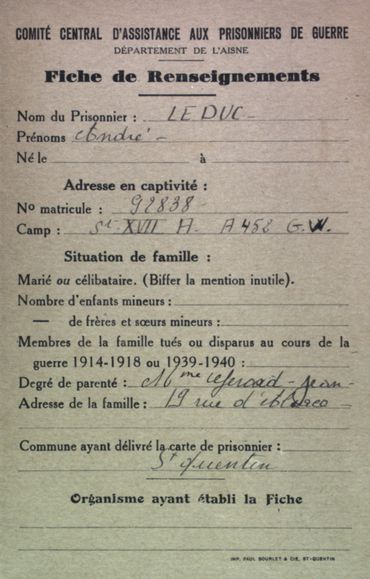 COMITÉ CENTRAL D'ASSISTANCE AUX PRISONNIERS DE GUERRE
DÉPARTEMENT DE L'AISNE
Fiche de Renseignements
Nom du Prisonnier : LEDUC
Prénoms André
Né le à
Adresse en captivité :
No matricule : 92838
Camp : St XVII A A 458 G.W.
Situation de famille :
Marié ou célibataire. (Biffer la mention inutile).
Nombre d'enfants mineurs :
— de frères et sœurs mineurs :
Membres de la famille tués ou disparus au cours de la
guerre 1914-1918 ou 1939-1940 :
Degré de parenté : Mme Jean
Adresse de la famille : 19 rue d'
Commune ayant délivré la carte de prisonnier :
St Quentin
Organisme ayant établi la Fiche
IMP. PAUL BOURLET & CIE, ST-QUENTIN